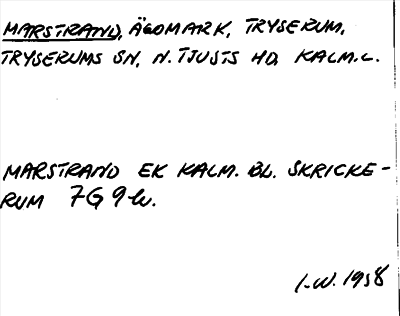 MARSTRAND, ÄGOMARK, TRYSERUM,
TRYSERUMS SN, N. TJUSTS HD, KALM.L.
MARSTRAND EK KALM. BL. SKRICKE-
RUM 7G 9h.
I-W. 1958